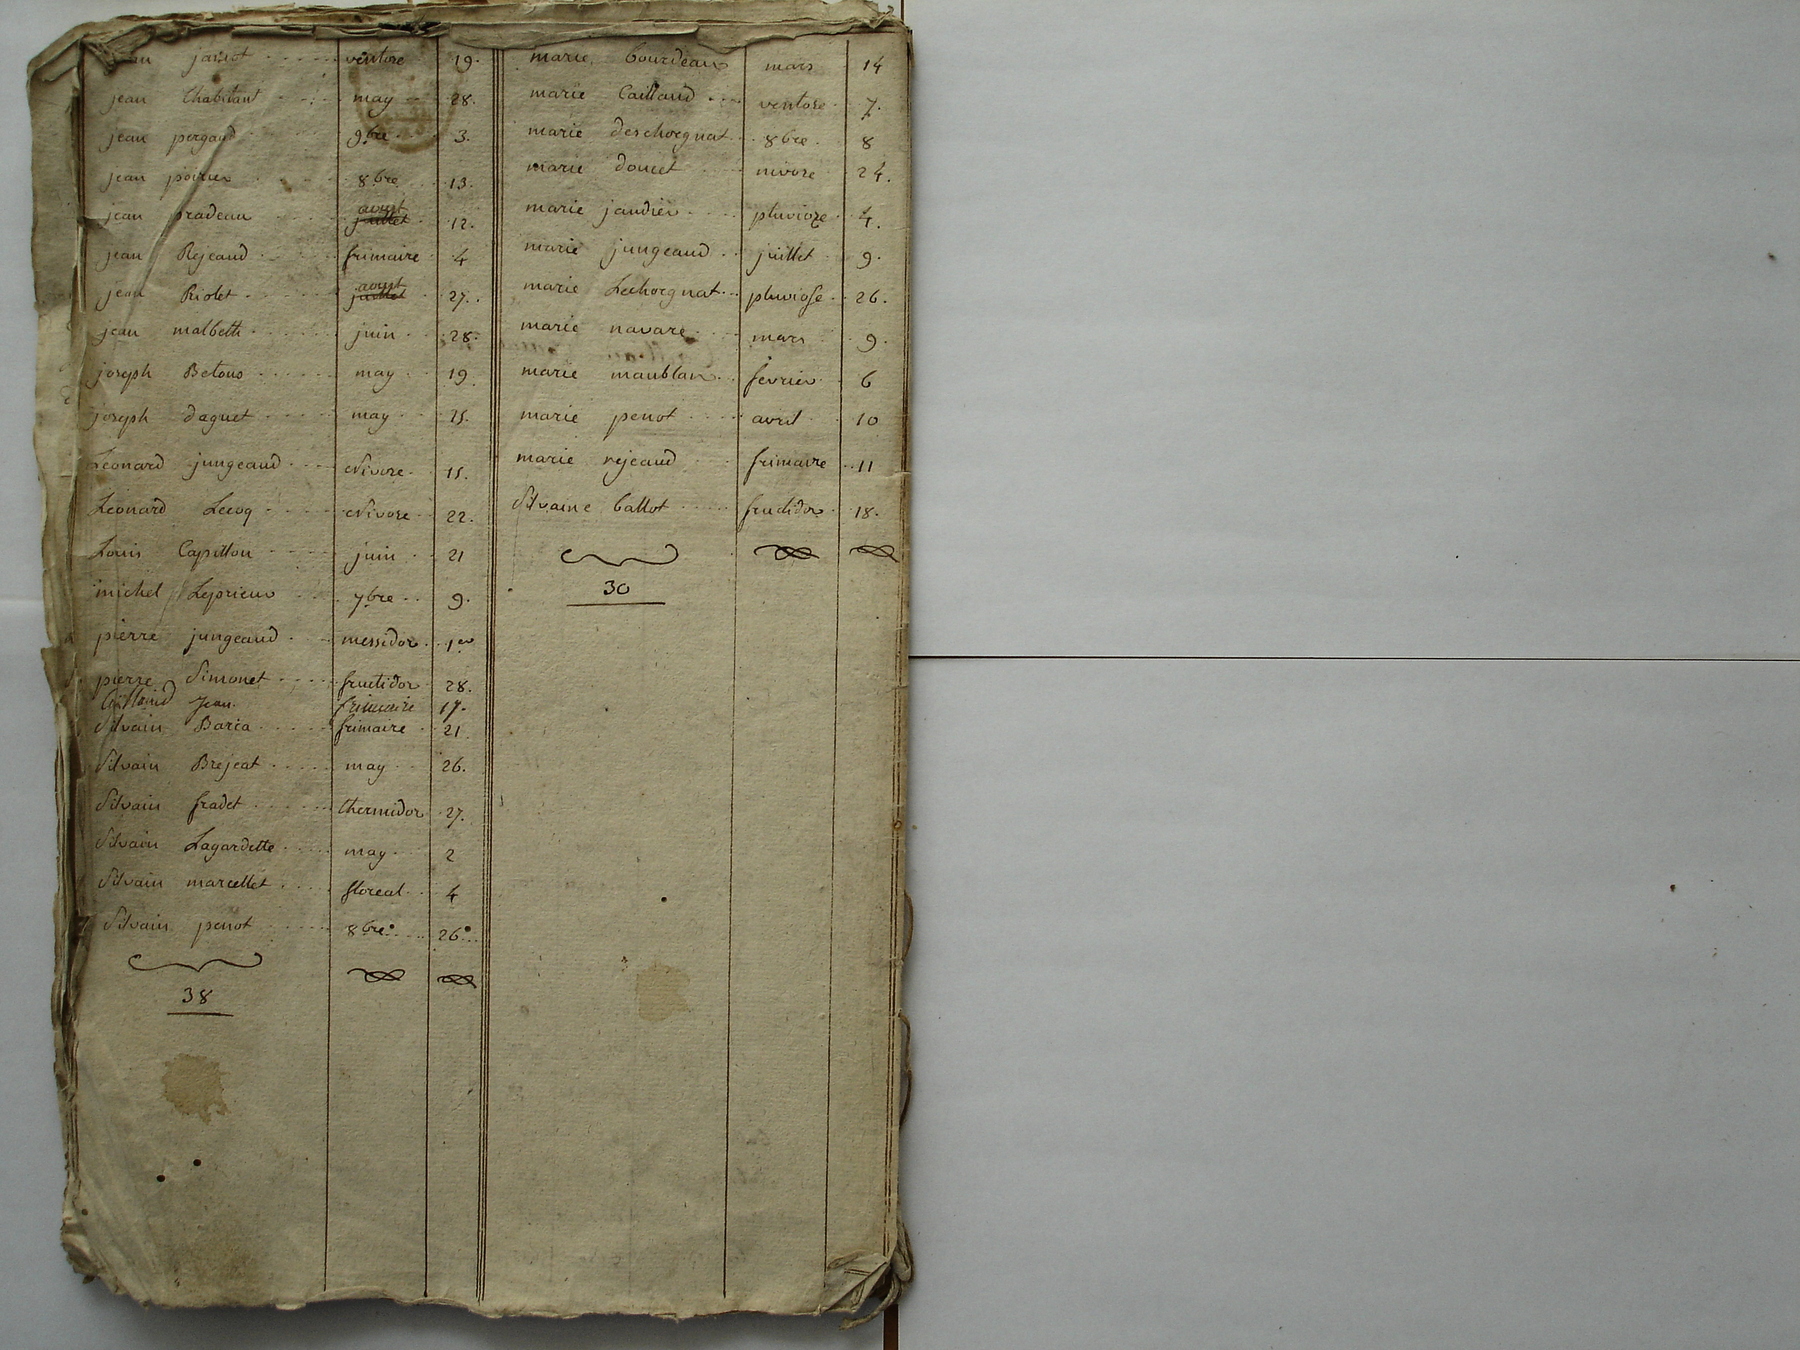 jean jarriot ventose 19.
jean Chabitant may 28.
jean pergaud 9bre 3.
jean poirier 8bre 13.
jean pradeau aoust juillet 12.
jean Rejeaud frimaire 4
jean Riolet aoust juillet 27.
jean malbeth juin 28.
joseph Betous may 19
joseph daguet may 25.
Leonard jungeaud Nivose 15.
Leonard Lecoq Nivose 22.
Louis Capillou juin 21
michel Leprieur 7bre 9.
pierre jungeaud messidor 1er
pierre Simonet fructidor 28.
Caillaud Jean frimaire 17.
Silvain Baria frimaire 21
Silvain Brejeat may 26.
Silvain fradet thermidor 27.
Silvain Lagardette may 2
Silvain marcellet floreal 4
Silvain penot 8bre 26
38
marie bourdeaux mars 14
marie Caillaud ventose 7.
marie deschorgnat 8bre 8
marie doucet nivose 24.
marie jaudier pluvioze 4.
marie jungeaud juillet 9.
marie Lechorgnat pluviose 26.
marie navare mars 9.
marie maublanc fevrier 6
marie penot avril 10
marie rejeaud frimaire 11
Silvaine ballot fructidor 18.
30